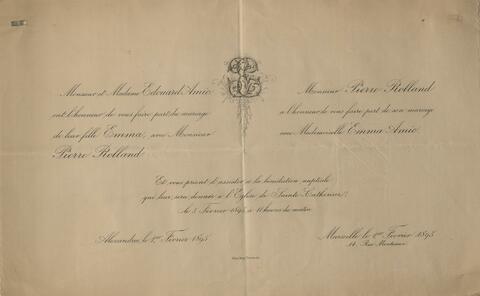 Monsieur et Madame Edouard Amic
ont l'honneur de vous faire part du mariage
de leur fille Emma, avec Monsieur
Pierre Rolland
Monsieur Pierre Rolland
a l'honneur de vous faire part de son mariage
avec Mademoiselle Emma Amic
Et vous prient d'assister à la bénédiction nuptiale
qui leur sera donnée à l'Eglise de Sainte Catherine
le 5 Février 1895 à 11 heures du matin
Alexandrie, le 1er Février 1895
Marseille le 1er Février 1895
14, Rue